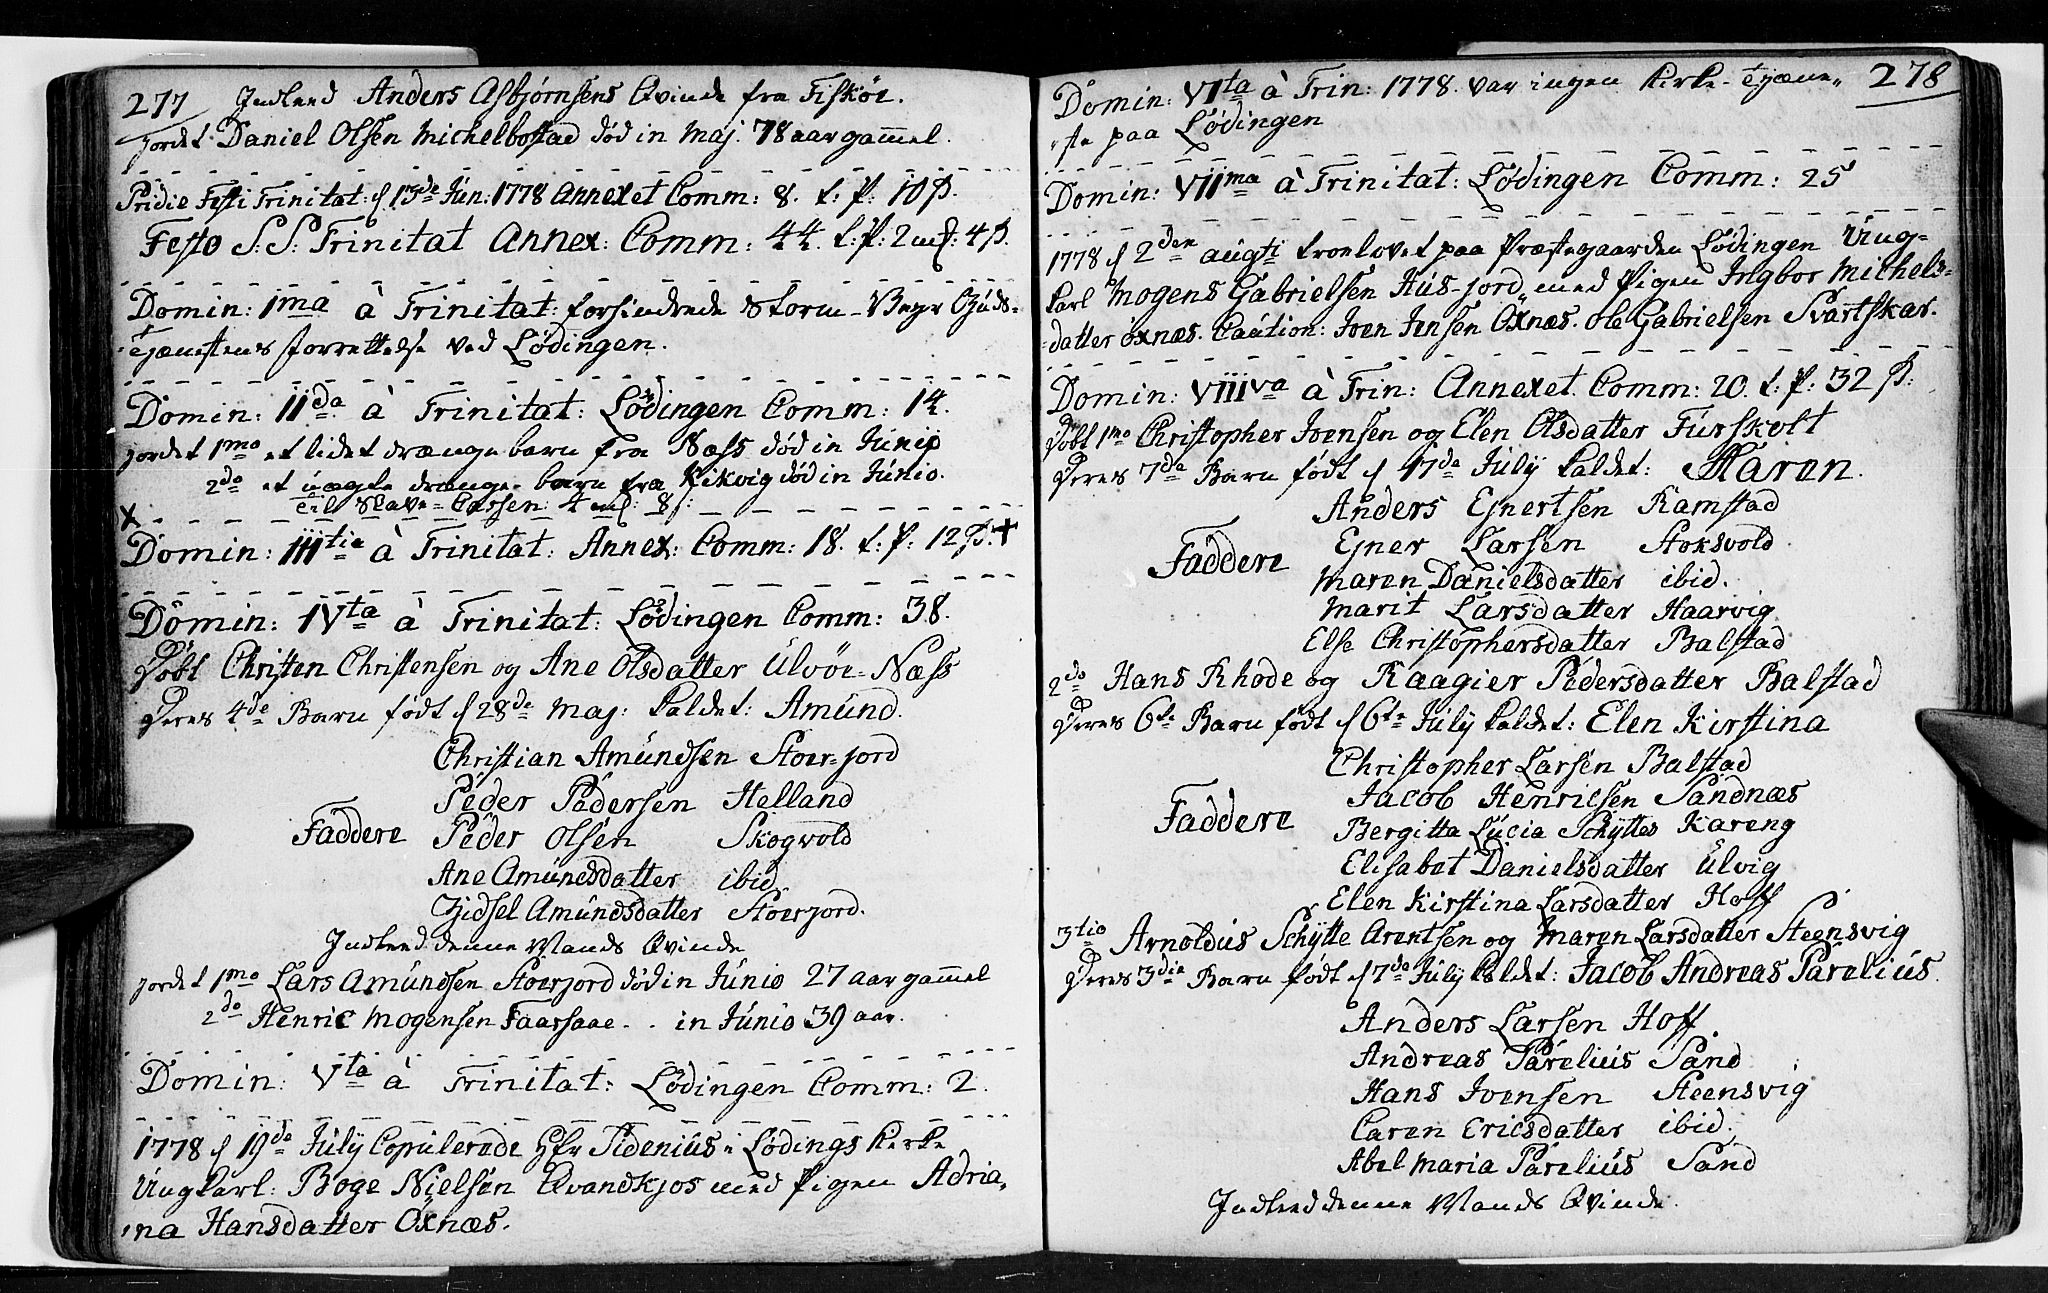 277 Indleed Anders Asbjørnsens Qvinde fra Fiskøe.
jordet Daniel Olsen Michelbostad død in Maj. 78 aar gammel.
Pridie Festi Trinitat: d 13de Jun: 1778 Annexet Comm: 8. t: P: 10 ß.
Festo S: S: Trinitat Annex: Comm: 44. t: P: 2 mk: 4 ß.
Domin: 1ma à Trinitat: forhindrede Storm-Vejr Gůds-
Tjænestens forrettelse ved Lødingen.
Domin: IIda à Trinitat: Lødingen Comm: 14.
jordet 1mo et lidet drænge barn fra Næss død in Junij
2do et uægte drænge-barn fra Kikvig død in Junio.
til Slave-Cassen: 4 mk: 8 ß:
Domin: IIItia à Trinitat: Annex: Comm: 18. t: P: 12 ß. +
Domin: IVta à Trinitat: Lødingen Comm: 38.
Døbt Christen Christensen og Ane Olsdatter Ulvøe-Næss
Deres 4de Barn født d 28de Maj: kaldet: Amund.
Christian Amundsen Stoer-jord
Peder Pedersen Helland
Faddere Peder Olsen Skogvold
Ane Amundsdatter ibid
Zidsel Amundsdatter Stoerjord.
Indleed denne Mands Qvinde
jordet 1mo Lars Amundsen Stoerjord død in Junio 27 aar gammel
2do Henric Mogensen Faarsaae . . in Junio 39 aar.
Domin: Vta à Trinitat: Lødingen Comm: 2.
1778 d 19de July Copulerede Hfr Tidenius i Lødings Kerke
Ungkarl: Boge Nielsen Qvandkjos med Pigen Adria,
,na Hansdatter Oxnæs.
Domin: VIta à Trin: 1778. var ingen Kirke-Tjæne,, 278
,,ste paa Lødingen
Domin: VIIma à Trinitat: Lødingen Comm: 25
1778 d 2den augsti troelovet paa Præstegaarden Lødingen Ung-
karl Mogens Gabrielsen Hus-jord, med Pigen Ingbor Michels-
-datter oxnæs. Caution: Iven Jensen Oxnæs. Ole Gabrielsen Svartskar.
Domin: VIIIva à Trin: Annexet. Comm: 20. t: P: 32 ß:
Døbt 1mo Christopher Ivensen og Elen Olsdatter Furskolt
Deres 7de Barn født d 17de July kaldet: Maren.
Anders Ejnertsen Ramstad
Ejner Larsen Stoksvold
Faddere
Maren Danielsdatter ibid.
Marit Larsdatter Haarvig
Else Christophersdatter Balstad
2do Hans Rhode og Raagier Pedersdatter Balstad
Deres 6te Barn født d 6te July kaldet: Elen Kirstina
Christopher Larsen Balstad
Jacob Henricsen Sandnæs
Faddere Bergitta Lucia Schyttes Kareng
Elisabet Danielsdatter Ulvig
Elen Kirstina Larsdatter Hoff
3tio Arnoldus Schytte Arentsen og Maren Larsdatter Steensvig
Deres 3die Barn født d 7de July kaldet: Jacob Andreas Parelius.
Anders Larsen Hoff.
Andreas Parelius Sand
Hans Ivensen Steensvig
Caren Ericsdatter ibid.
Abel Maria Parelius Sand
Indleed denne Mands Qvinde.